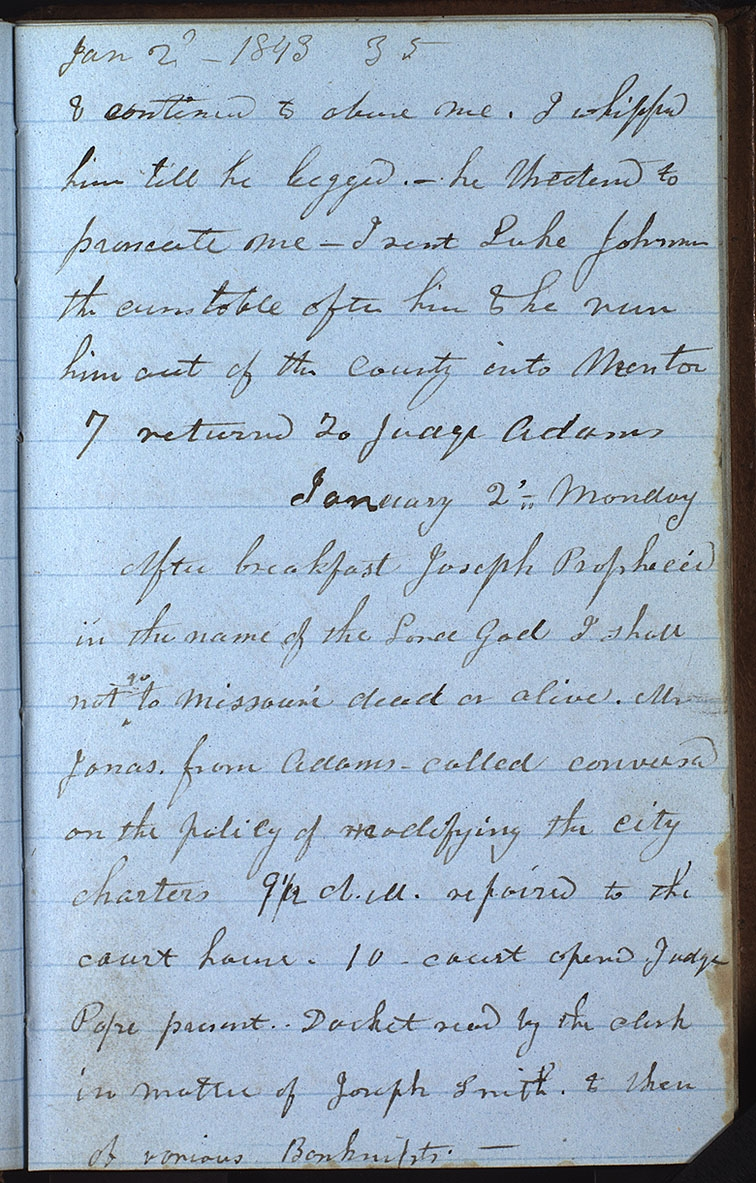 Jan 2d — 1843 35
& continued to abuse me. I whipped
him till he begged. — he threatend to
prosecute me — I sent Luke Johnson
the cunstable after him & he run
him out of the County into Mentor
7 returnd To Judge Adams
January 2d Monday
After breakfast Joseph Prophecied
in the name of the Lord God I shall
not go to Missouri dead or alive. Mr
Jonas. from Adams — called conversd
on the policy of modifying the city
charters 9 1/2 A.M. repaired to the
court house. 10 — court opend Judge
Pope present.. Docket read by the clerk
in matter of Joseph Smith. & then
of various Bankrupts. —